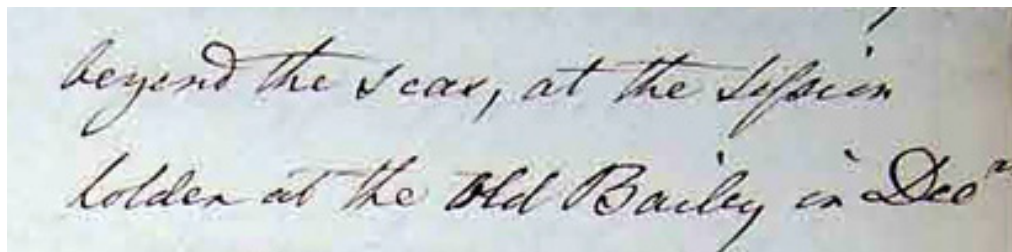 beyond the seas, at the Session
holden at the Old Bailey in Dec<sup>r</sup>